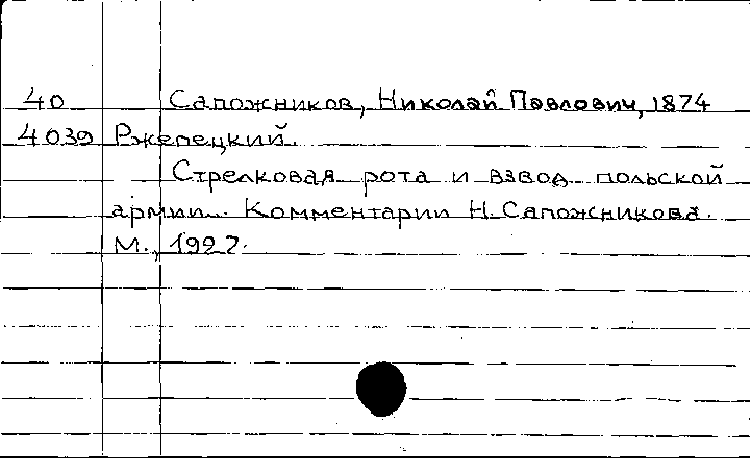 40 Сапожников, Николай Павлович, 1874
4039 Ржепецкий.
Стрелковая рота и взвод польской
армии. Комментарии Н. Сапожникова.
М., 1927.